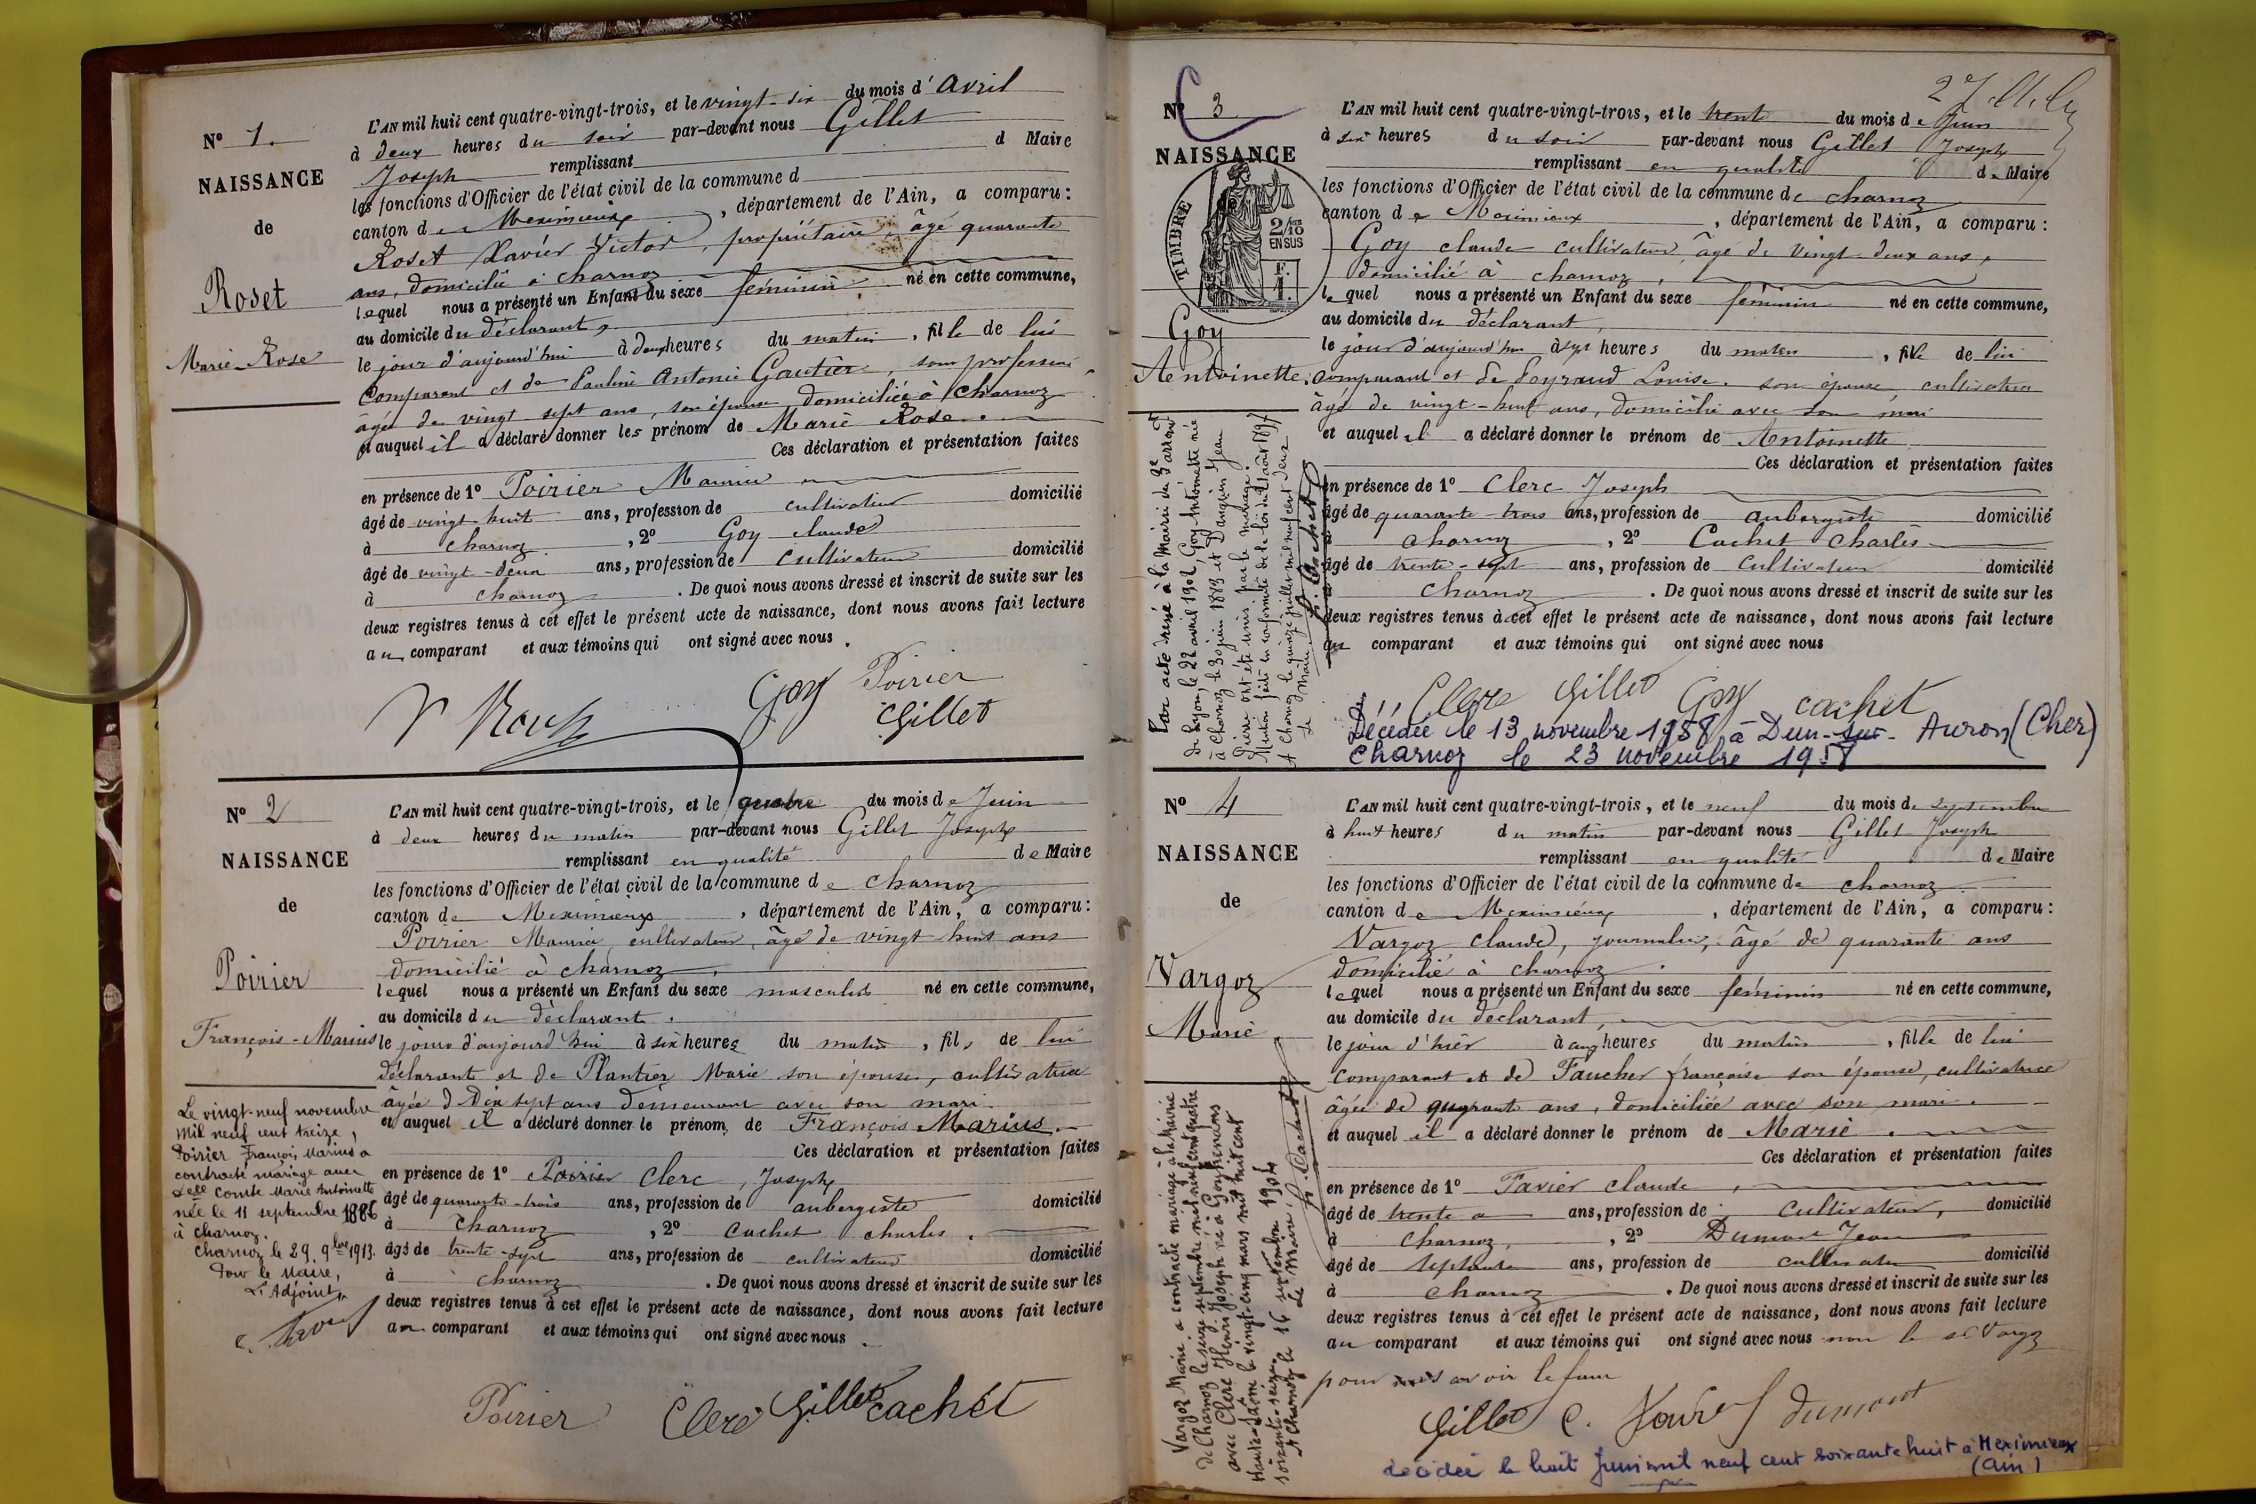 N° 1.
NAISSANCE
de
Roset
Marie-Rose
L'AN mil huit cent quatre-vingt-trois, et le vingt-six du mois d'Avril
à deux heures du soir par-devant nous Gillet
Joseph remplissant d Maire
les fonctions d'Officier de l'état civil de la commune d
canton de Meximieux, département de l'Ain, a comparu :
Roset Xavier Victor, propriétaire, âgé quarante
ans, domicilié à Charnoz
lequel nous a présenté un Enfant du sexe féminin né en cette commune,
au domicile du déclarant,
le jour d'aujourd'hui à deux heures du matin, fille de lui
Comparant et de Pauline Antonie Gautier, sans profession
âgée de vingt sept ans, son épouse, domiciliée à Charnoz
et auquel il a déclaré donner les prénom de Marie Rose.
Ces déclaration et présentation faites
en présence de 1° Poirier Maurice
âgé de vingt-huit ans, profession de cultivateur domicilié
à Charnoz, 2° Goy claude
âgé de vingt-deux ans, profession de cultivateur domicilié
à charnoz. De quoi nous avons dressé et inscrit de suite sur les
deux registres tenus à cet effet le présent acte de naissance, dont nous avons fait lecture
au comparant et aux témoins qui ont signé avec nous.
Goy Poirier
Gillet
N° 2
NAISSANCE
de
Poirier
François-Marius
L'AN mil huit cent quatre-vingt-trois, et le quatre du mois de Juin
à deux heures du matin par-devant nous Gillet Joseph
remplissant en qualité de Maire
les fonctions d'Officier de l'état civil de la commune de charnoz
canton de Meximieux, département de l'Ain, a comparu :
Poirier Maurice, cultivateur, âgé de vingt huit ans
domicilié à charnoz.
lequel nous a présenté un Enfant du sexe masculin né en cette commune,
au domicile du déclarant.
le jour d'aujourd'hui à six heures du matin, fils de lui
déclarant et de Plantier Marie son épouse, cultivatrice
âgée d dix sept ans demeurant avec son mari.
et auquel il a déclaré donner le prénom de François Marius.
Ces déclaration et présentation faites
en présence de 1° Poirier Clerc, Joseph
âgé de quarante-trois ans, profession de aubergiste domicilié
à charnoz, 2° cachet charles.
âgé de trente-sept ans, profession de cultivateur domicilié
à charnoz. De quoi nous avons dressé et inscrit de suite sur les
deux registres tenus à cet effet le présent acte de naissance, dont nous avons fait lecture
au comparant et aux témoins qui ont signé avec nous.
Le vingt-neuf novembre
mil neuf cent treize,
Poirier François Marius a
contracté mariage avec
Delle Comte Marie Antoinette
née le 11 septembre 1886
à charnoz.
Charnoz le 29 9bre 1913.
Pour le Maire,
L'Adjoint,
Poirier Clerc Gillet cachet
N° 3
NAISSANCE
TIMBRE
2/10 EN SUS
F.
1.
Goy
Antoinette.
L'AN mil huit cent quatre-vingt-trois, et le trente du mois de Juin
à six heures du soir par-devant nous Gillet Joseph
remplissant en qualité de Maire
les fonctions d'Officier de l'état civil de la commune de charnoz
canton de Meximieux, département de l'Ain, a comparu :
Goy claude cultivateur, âgé de vingt-deux ans,
domicilié à charnoz,
lequel nous a présenté un Enfant du sexe féminin né en cette commune,
au domicile du déclarant,
le jour d'aujourd'hui à sept heures du matin, fille de lui
comparant et de Peyraud Louise, son épouse, cultivatrice
âgé de vingt-huit ans, domicilié avec son mari
et auquel il a déclaré donner le prénom de Antoinette
Ces déclaration et présentation faites
en présence de 1° Clerc Joseph
âgé de quarante-trois ans, profession de aubergiste domicilié
à charnoz, 2° Cachet Charles
âgé de trente-sept ans, profession de cultivateur domicilié
charnoz. De quoi nous avons dressé et inscrit de suite sur les
deux registres tenus à cet effet le présent acte de naissance, dont nous avons fait lecture
au comparant et aux témoins qui ont signé avec nous
Par acte dressé à la Mairie du 3e arrondt
de Lyon, le 22 avril 1902, Goy Antoinette née
à Charnoz le 30 juin 1883 et Danguin Jean
Pierre ont été unis par le mariage.
Mention faite en conformité de la loi du 17 août 1897
A Charnoz le quinze juillet mil neuf cent deux
Le Maire, Cachet
Clerc Gillet Goy cachet
Décédée le 13 novembre 1958 à Dun-sur-Auron (Cher)
Charnoz le 23 novembre 1958
N° 4
NAISSANCE
de
Vargoz
Marie
L'AN mil huit cent quatre-vingt-trois, et le neuf du mois de septembre
à huit heures du matin par-devant nous Gillet Joseph
remplissant en qualité de Maire
les fonctions d'Officier de l'état civil de la commune de charnoz
canton de Meximieux, département de l'Ain, a comparu :
Vargoz claude, journalier, âgé de quarante ans
domicilié à charnoz.
lequel nous a présenté un Enfant du sexe féminin né en cette commune,
au domicile du déclarant,
le jour d'hier à cinq heures du matin, fille de lui
comparant et de Faucher françoise son épouse, cultivatrice
âgée de quarante ans, domiciliée avec son mari.
et auquel il a déclaré donner le prénom de Marie.
Ces déclaration et présentation faites
en présence de 1° Favier claude,
âgé de trente ans, profession de cultivateur, domicilié
à charnoz, 2° Dumont Jean
âgé de septante ans, profession de cultivateur domicilié
à charnoz. De quoi nous avons dressé et inscrit de suite sur les
deux registres tenus à cet effet le présent acte de naissance, dont nous avons fait lecture
au comparant et aux témoins qui ont signé avec nous non le sr Vargoz
pour avoir le faire
Vargoz Marie a contracté mariage à la Mairie
de Charnoz le seize septembre mil neuf cent quatre
avec Clerc Henri Joseph né à Gouhenans
Haute-Saône le vingt-cinq mars mil huit cent
soixante-seize.
A Charnoz le 16 septembre 1904
Le Maire, Cachet
Gillet C. Favier dumont
décédée le huit Juin mil neuf cent soixante huit à Meximieux
(Ain)